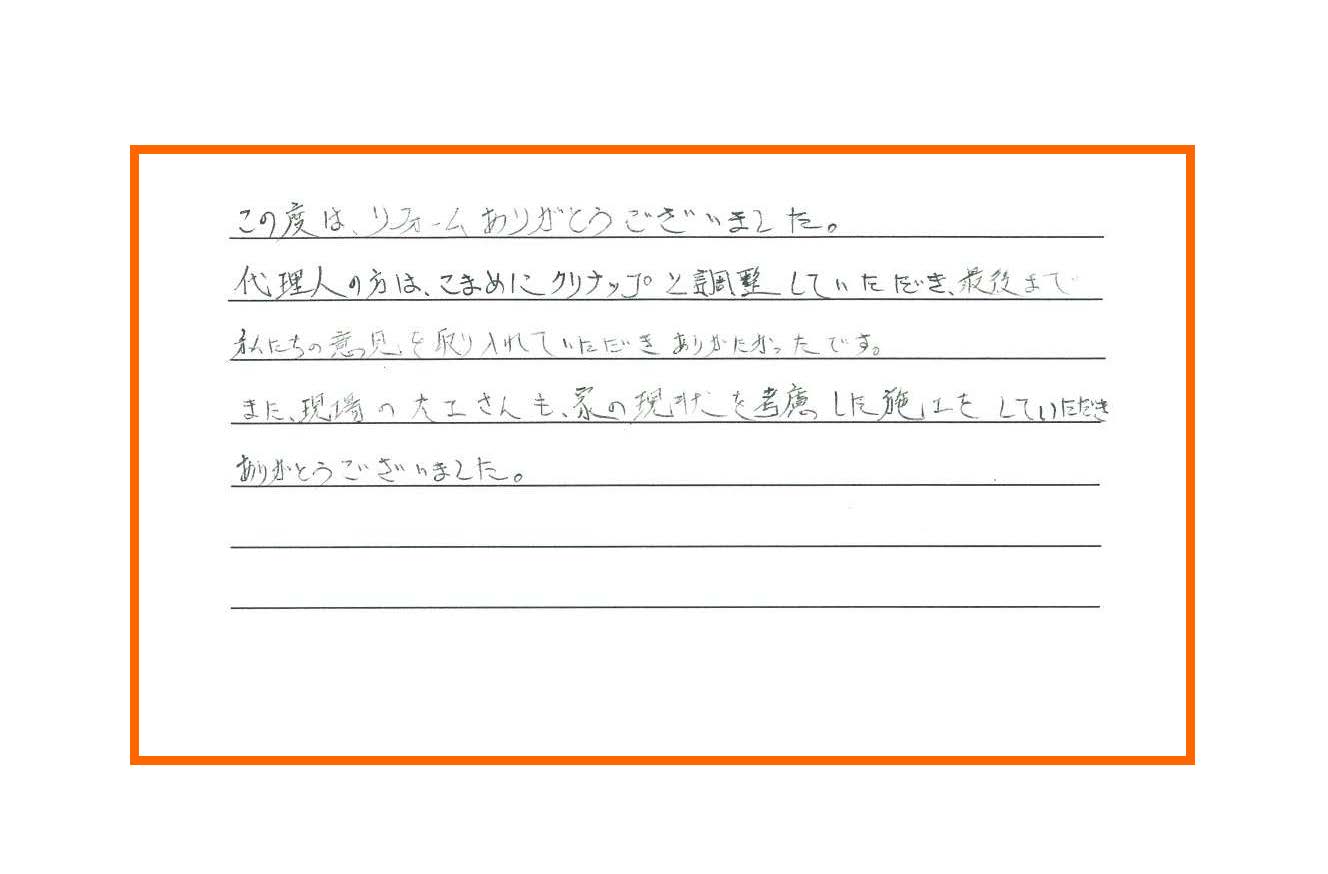 この度は、リフォームありがとうございました。
代理人の方は、こまめにクリナップと調整していただき、最後まで
私たちの意見を取り入れていただきありがたかったです。
また、現場の大工さんも、家の現状を考慮した施工をしていただき
ありがとうございました。